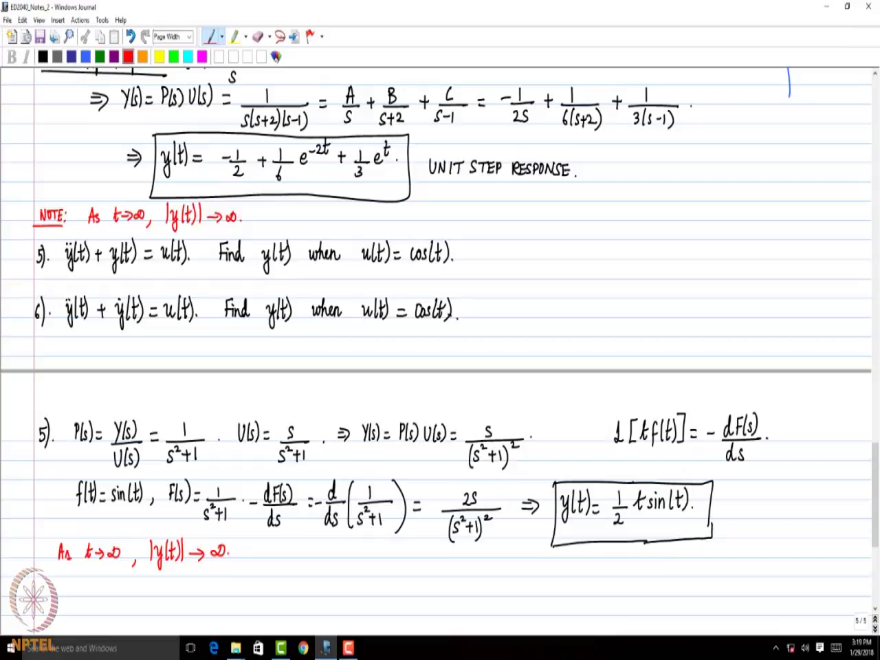 ED2040_Notes_2 - Windows Journal
File Edit View Insert Actions Tools Help
Page Width
B I
S
⇒ Y(s) = P(s) U(s) = 1/(s(s+2)(s-1)) = A/s + B/(s+2) + C/(s-1) = -1/(2s) + 1/(6(s+2)) + 1/(3(s-1)) .
⇒ y(t) = -1/2 + 1/6 e^{-2t} + 1/3 e^{t}. UNIT STEP RESPONSE.
NOTE: As t→∞, |y(t)| → ∞.
5). ÿ(t) + y(t) = u(t). Find y(t) when u(t) = cos(t).
6). ÿ(t) + ẏ(t) = u(t). Find y(t) when u(t) = cos(t).
5). P(s) = Y(s)/U(s) = 1/(s²+1) . U(s) = s/(s²+1) . ⇒ Y(s) = P(s) U(s) = s/(s²+1)² . L[t f(t)] = - dF(s)/ds .
f(t) = sin(t), F(s) = 1/(s²+1) . - dF(s)/ds = - d/ds (1/(s²+1)) = 2s/(s²+1)² ⇒ y(t) = 1/2 t sin(t).
As t→∞, |y(t)| → ∞.
NPTEL
5/5
the web and Windows
3:19 PM
1/29/2018